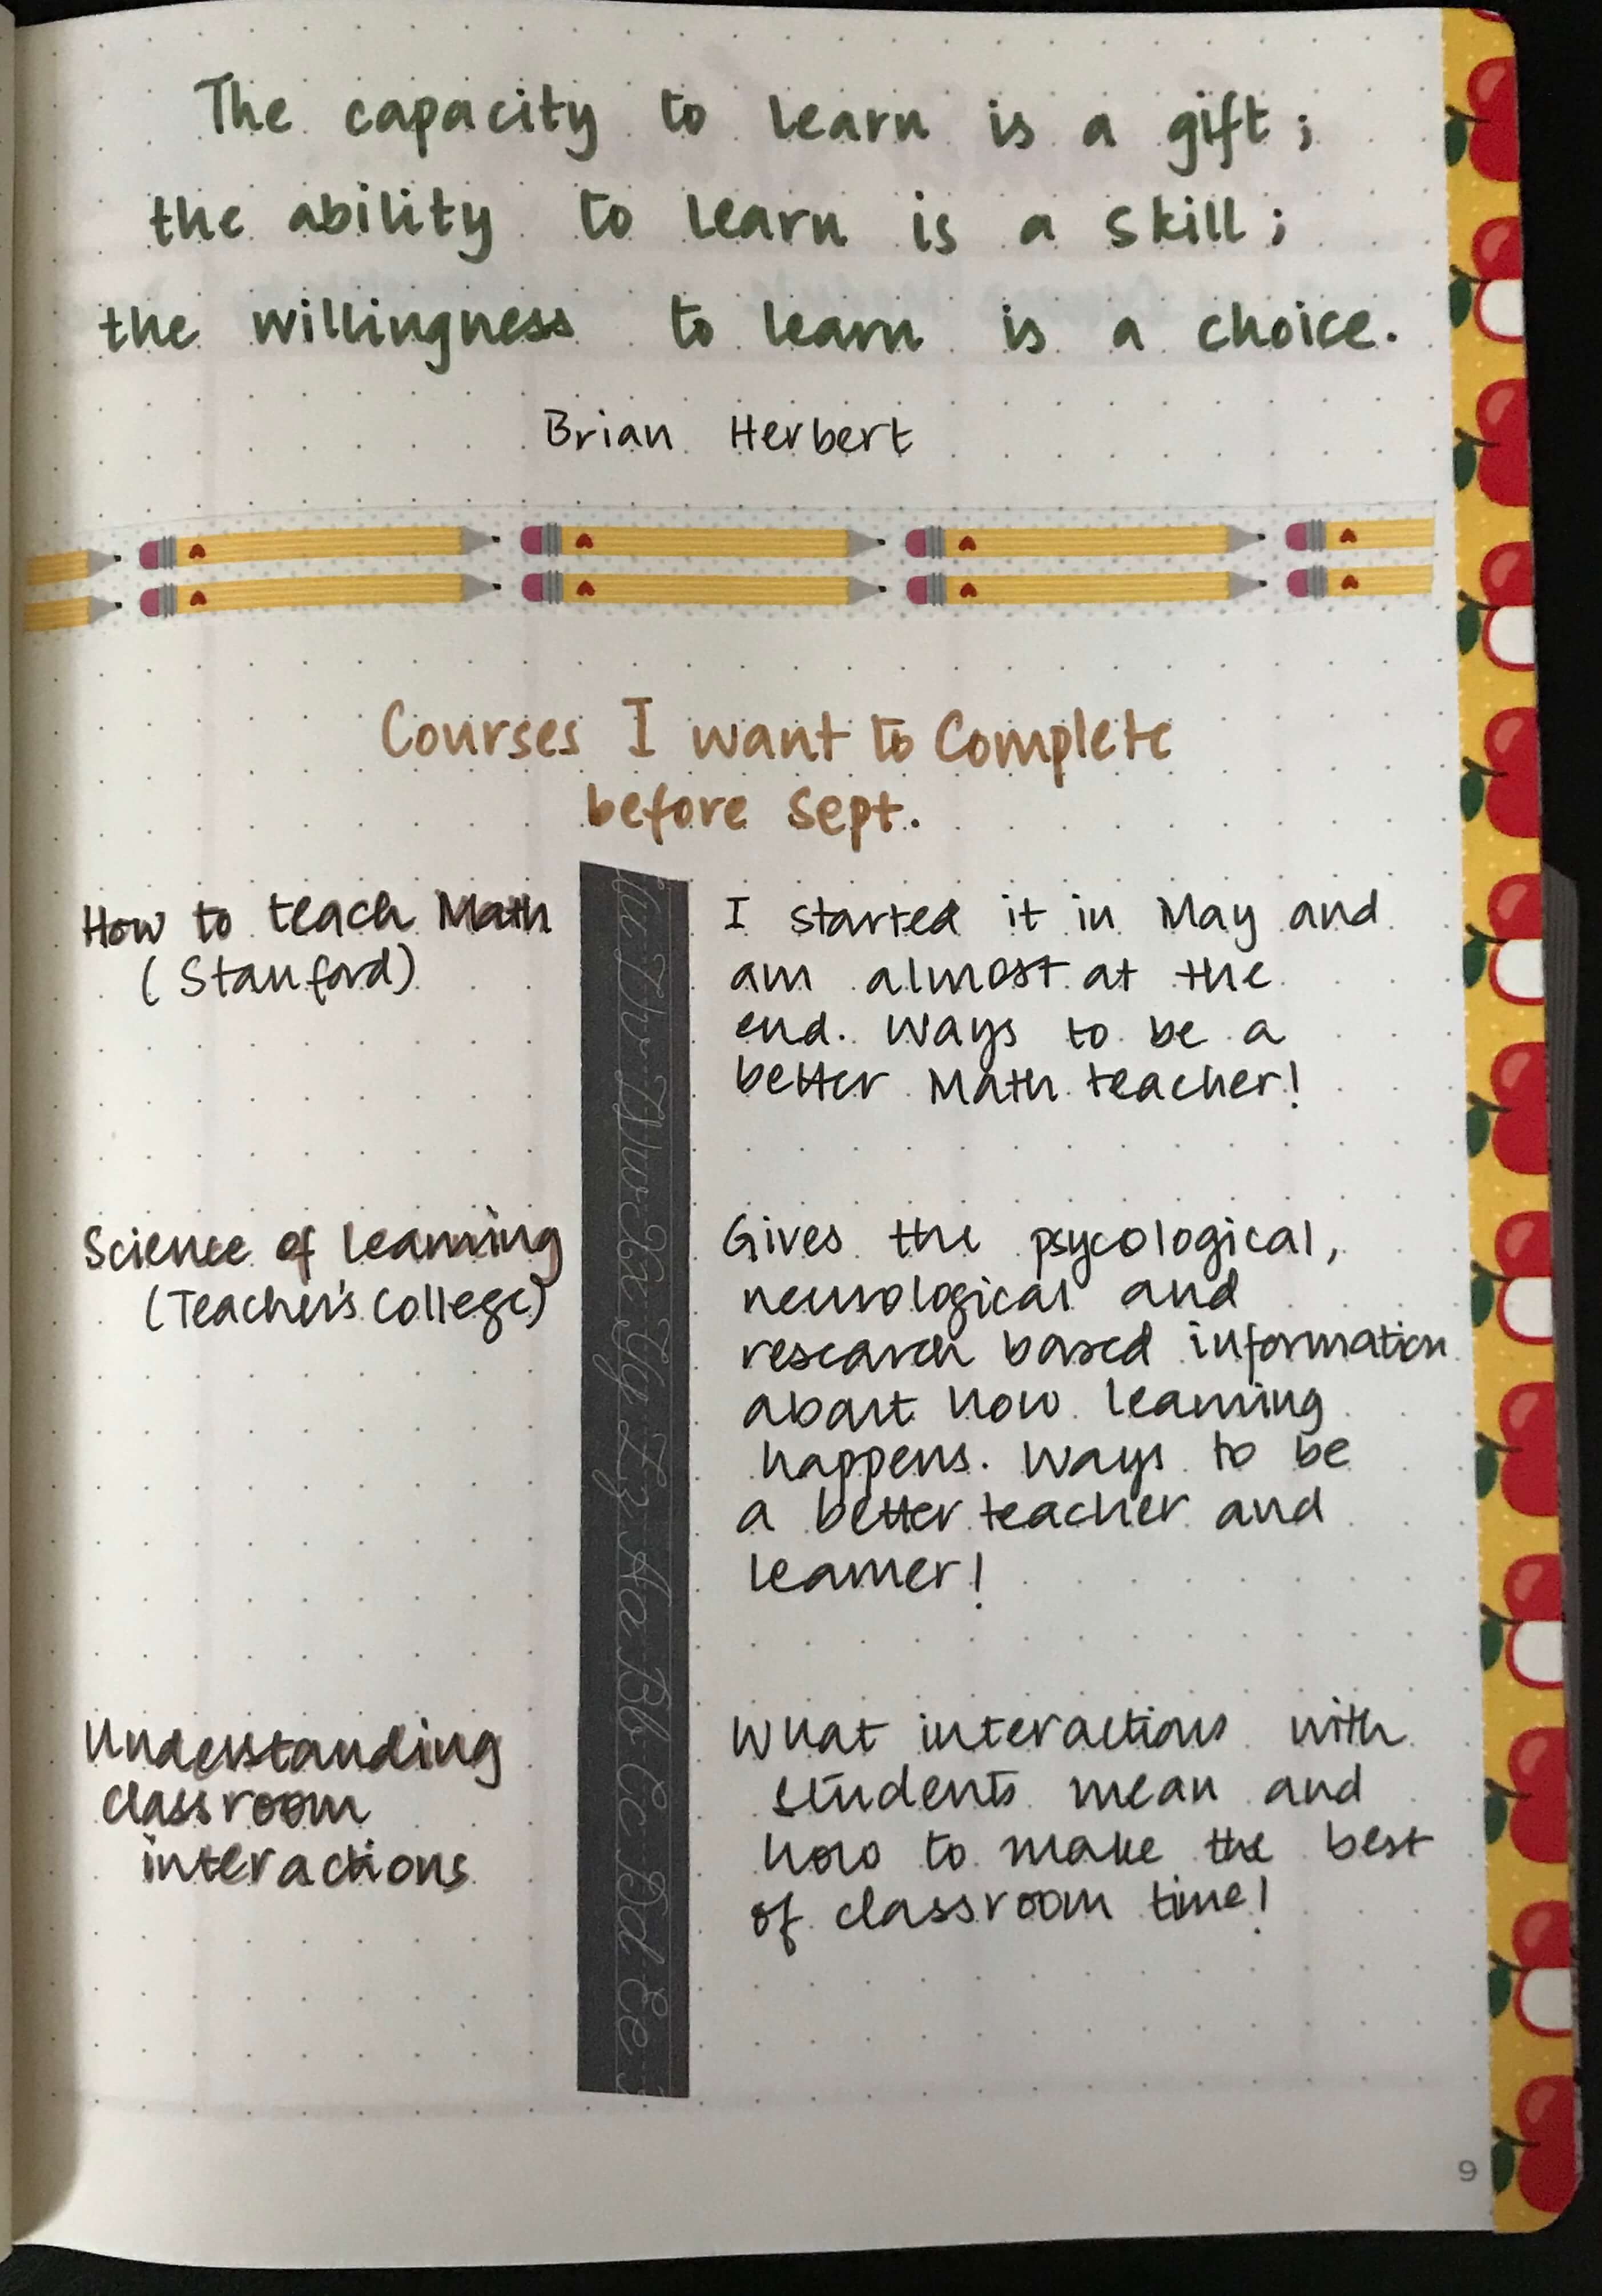 The capacity to learn is a gift;
the ability to learn is a skill;
the willingness to learn is a choice.
Brian Herbert
Courses I want to Complete
before Sept.
How to teach Math
(Stanford)
I started it in May and
am almost at the
end. Ways to be a
better Math teacher!
Science of learning
(Teacher's College)
Gives the psycological,
neurological and
research based information
about how learning
happens. Ways to be
a better teacher and
learner!
Understanding
classroom
interactions
What interactions with
students mean and
how to make the best
of classroom time!
Vv Ww Xx Yy Zz Aa Bb Cc Dd Ee
9